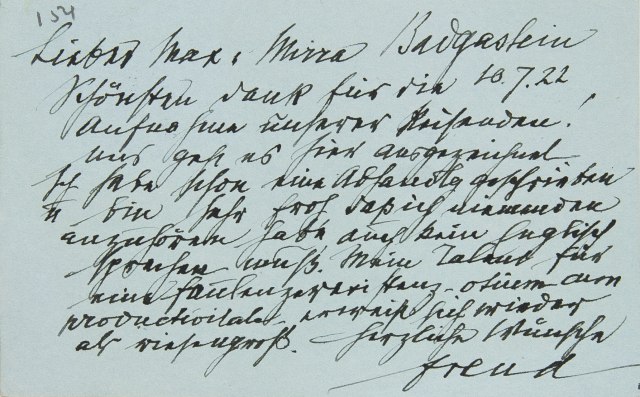 154
Lieber Max, Mirra Badgastein
Schönsten Dank für die 10.7.22
Aufnahme unserer Reisenden!
uns geht es hier ausgezeichnet
Ich habe schon eine Abhandlg geschrieben
u bin sehr froh daß ich niemanden
anzuhören habe auch kein Englisch
sprechen muß. Mein Talent für
eine Faulenzerexistenz otium cum
productivitate erweist sich wieder
als riesengroß. Herzliche Wünsche
Freud